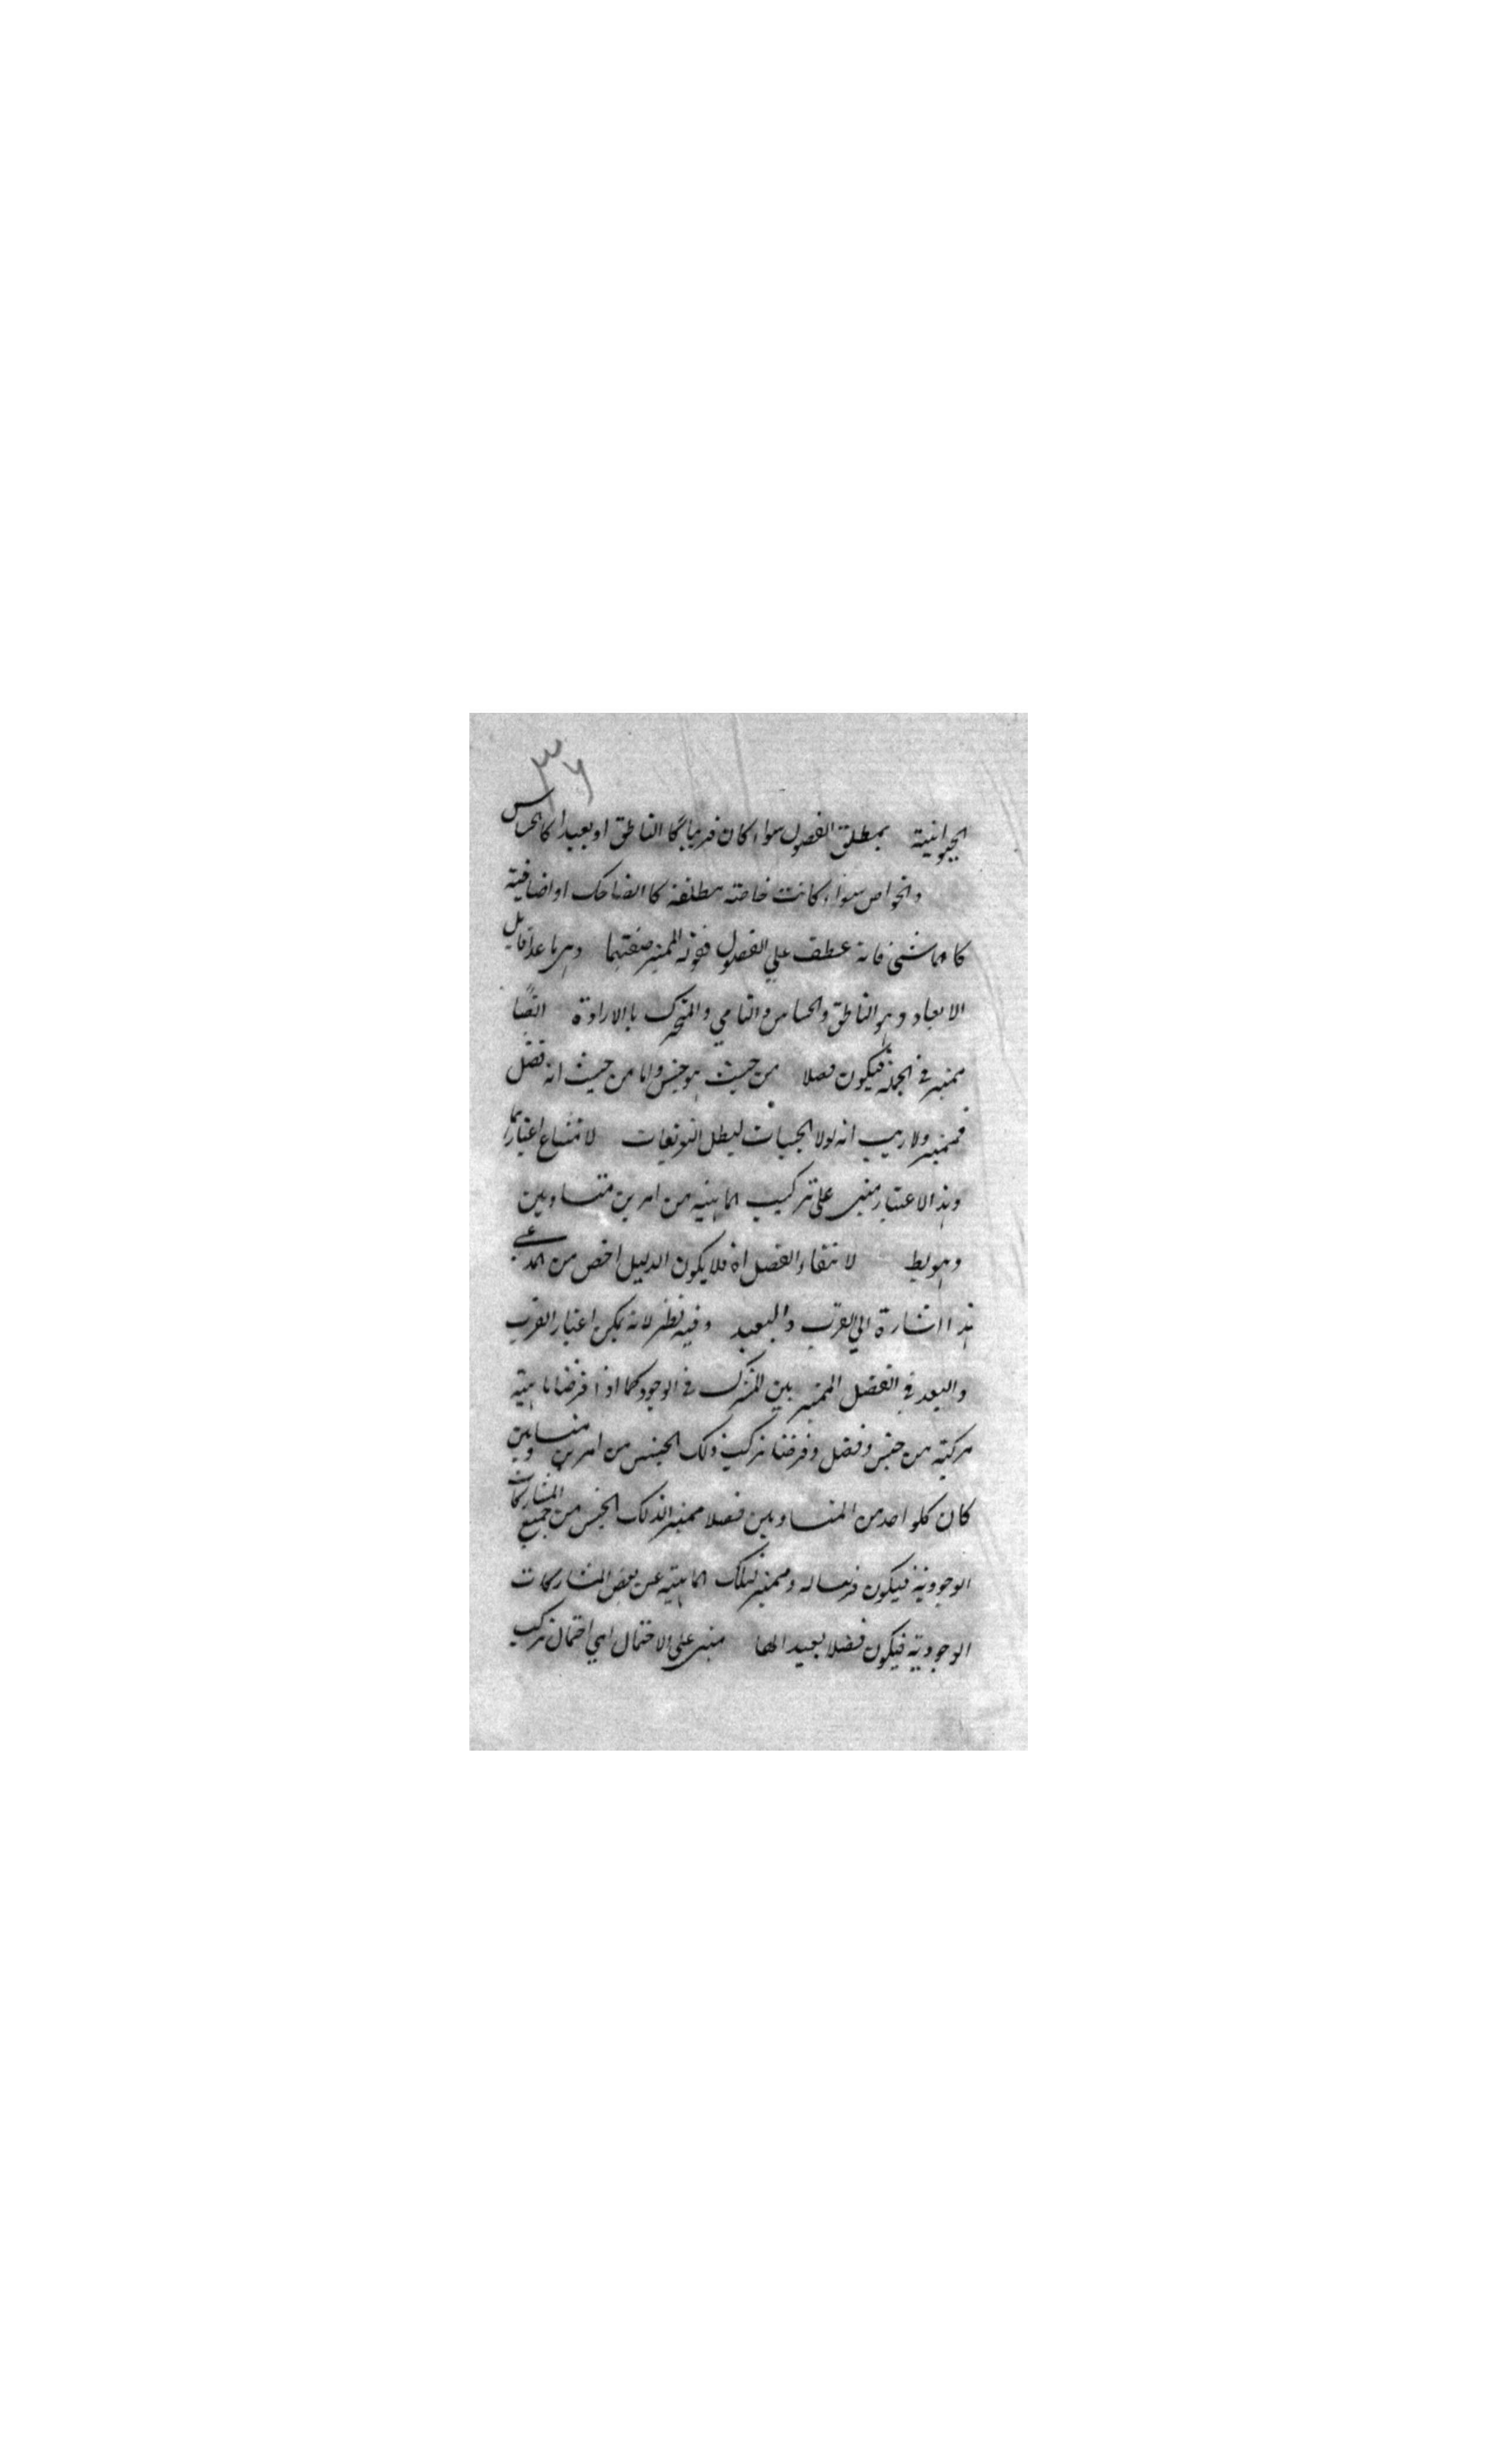 ٣٦
الحيوانية بمطلق الفصول سواء كان قريبا كا الناطق او بعيدا كالحساس
والخواص سواء كانت خاصة مطلقة كا الضاحك او اضافية
كا الماشي فانه عطف علي الفصول فقوله المميز صفتهما وهي ما عدا قابل
الابعاد وهو الناطق والحساس والنامي والمتحرك بالارادة ايضا
مميز في الجملة فيكون فصلا من حيث هو جنس واما من حيث انه فصل
فمميز ولا ريب انه لولا الحيثيات ليطل التعريفات لامتناع اعتبارهما
وهذا الاعتبار مبني على تركيب الماهية من امرين متساويين
وهو بط لانتفاء الفصل اه فلا يكون الدليل اخص من المدعي
هذا اشارة الي القرب والبعد وفيه نظر لانه يمكن اعتبار القرب
والبعد في الفصل المميز بين المشترك في الوجود كما اذا فرضنا ماهية
مركبة من جنس وفصل وفرضنا تركيب ذلك الجنس من امرين متساويين
كان كلواحد من المتساويين فصلا مميزا لذلك الجنس من جميع المشاركات
الوجودية فيكون قريبا له ومميز لتلك الماهية عن بعض المشاركات
الوجودية فيكون فصلا بعيدا لها مبني على الاحتمال اي احتمال تركيب